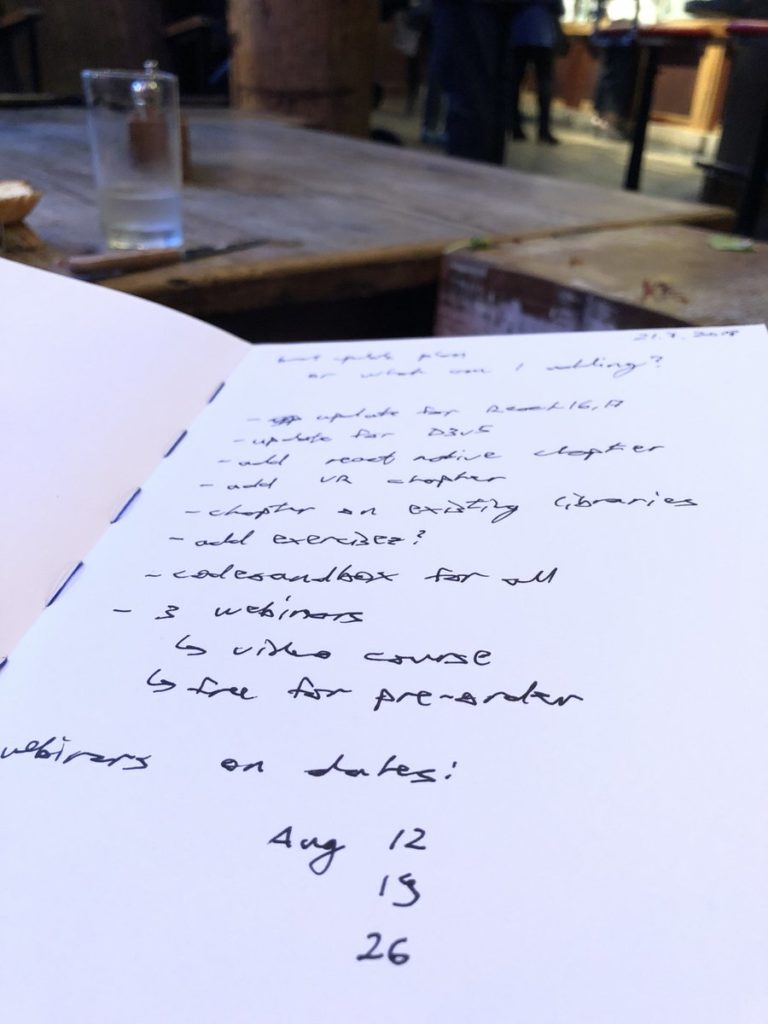 update plan
or what am I
- update for React 16, 17
- update for D3v5
- add react native chapter
- add VR chapter
- chapter on existing libraries
- add exercises?
- codesandbox for all
- 3 webinars
↳ video course
↳ free for pre-order
webinars on dates:
Aug 12
19
26